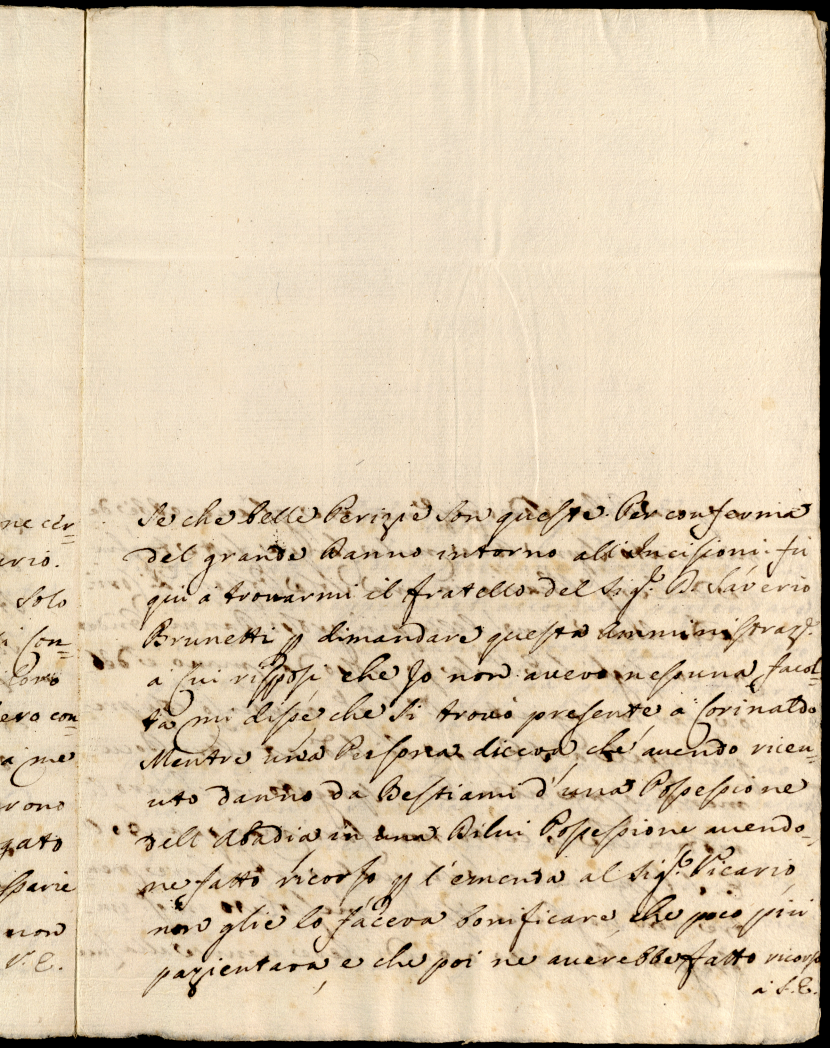 ne cer=
ario.
solo
i Con=
loro
ero con=
a me
rono
gato
sparie
non
V. E.
Se che belle Perizie son queste. Per conferma
del grande Danno intorno all'Incisioni. fu
qui a trovarmi il fratello del Sig.r D. Saverio
Brunetti p dimandare questa Amministraz.e
a Cui risposi che Jo non avevo nessuna facol=
tà, mi disse che si trovò presente a Corinaldo
Mentre una Persona diceva, che avendo riceu=
uto danno da Bestiami d'una Possessione
dell Abadia in una Dilui Possessione avendo=
ne fatto ricorso p l'emenda al Sig.r Vicario,
non glie lo faceva bonificare, che poco più
pazientava, e che poi ne averebbe fatto ricorso
a S. E.